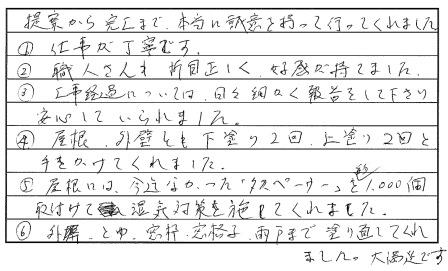 提案から完工まで、本当に誠意を持って行ってくれました
① 仕事が丁寧です。
② 職人さんも折目正しく、好感が持てました。
③ 工事経過については、日々細かく報告をして下さり
安心していられました。
④ 屋根、外壁とも下塗り2回、上塗り2回と
手をかけてくれました。
⑤ 屋根には、今迄なかった「タスペーサー」を約1,000個
取付けて湿気対策を施してくれました。
⑥ 外塀、とゆ、窓枠、窓格子、雨戸まで塗り直してくれ
ました。大満足です